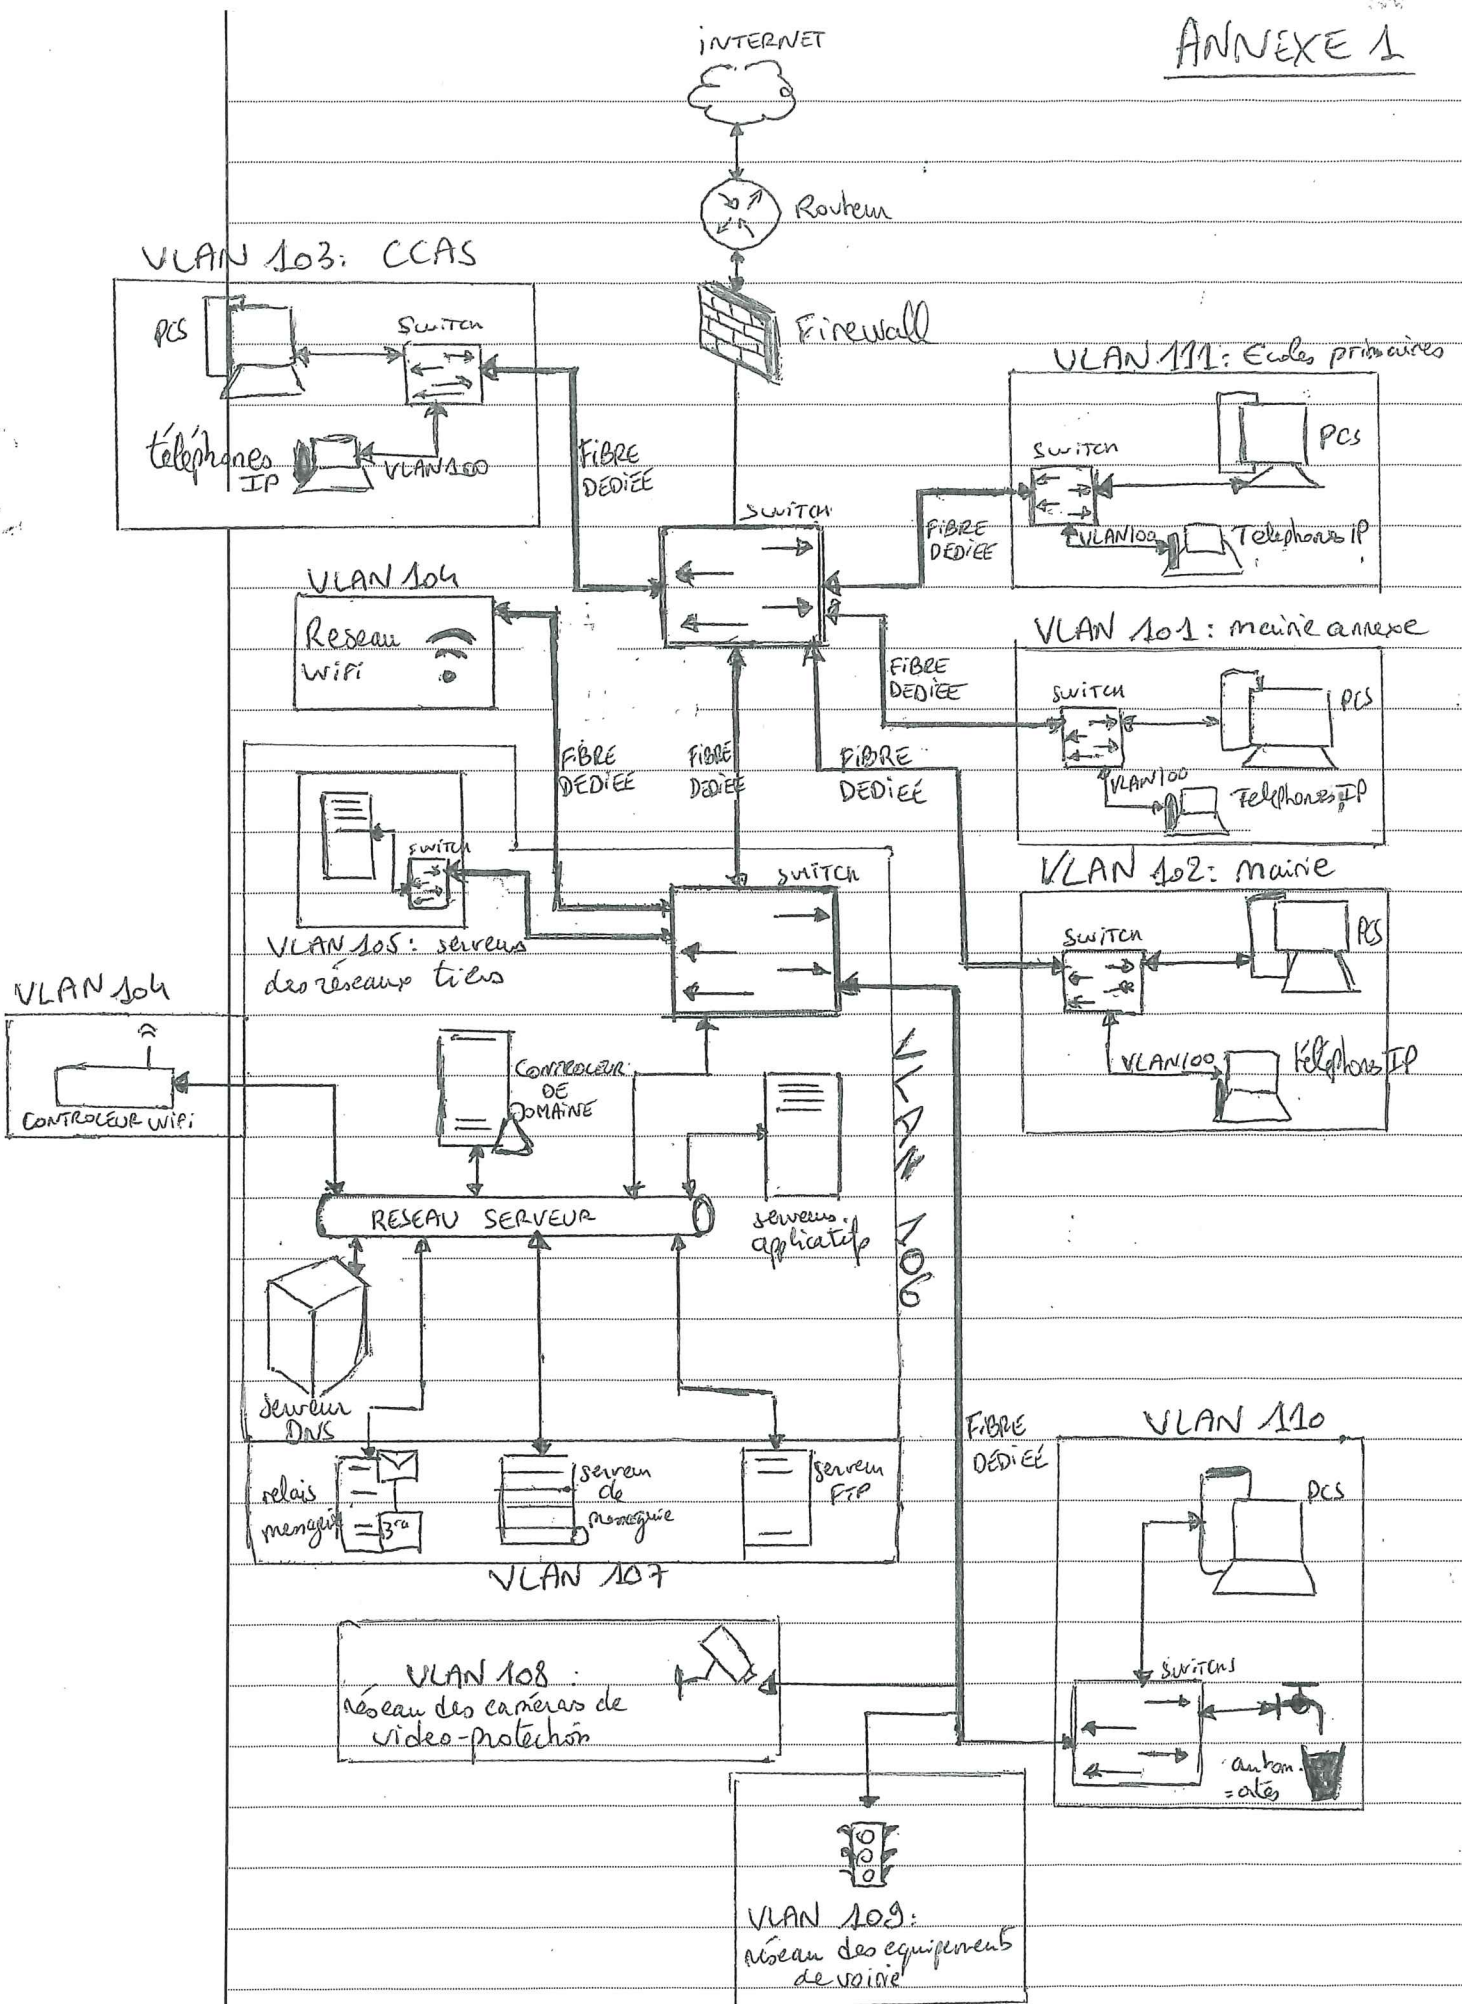 ANNEXE 1
INTERNET
Routeur
Firewall
VLAN 103: CCAS
PCS
SWITCH
téléphones
IP
VLAN100
FIBRE
DEDIEE
VLAN 111: Ecoles primaires
SWITCH
PCS
VLAN100
Telephones IP
FIBRE
DEDIEE
SWITCH
VLAN 104
Reseau
WiFi
VLAN 101: mairie annexe
SWITCH
PCS
VLAN100
Telephones IP
FIBRE
DEDIEE
FIBRE
DEDIEE
FIBRE
DEDIEE
FIBRE
DEDIEE
SWITCH
VLAN 105: serveurs
des réseaux tiers
SWITCH
VLAN 102: mairie
SWITCH
PCS
VLAN100
téléphones IP
VLAN 104
CONTROLEUR WiFi
CONTROLEUR
DE
DOMAINE
VLAN 106
RESEAU SERVEUR
serveurs
applicatifs
serveur
DNS
relais
serveur
de
messagerie
serveur
FTP
VLAN 107
FIBRE
DEDIEE
VLAN 110
PCS
SWITCHS
autom
=ates
VLAN 108 :
réseau des caméras de
video-protection
VLAN 109:
réseau des equipements
de voirie